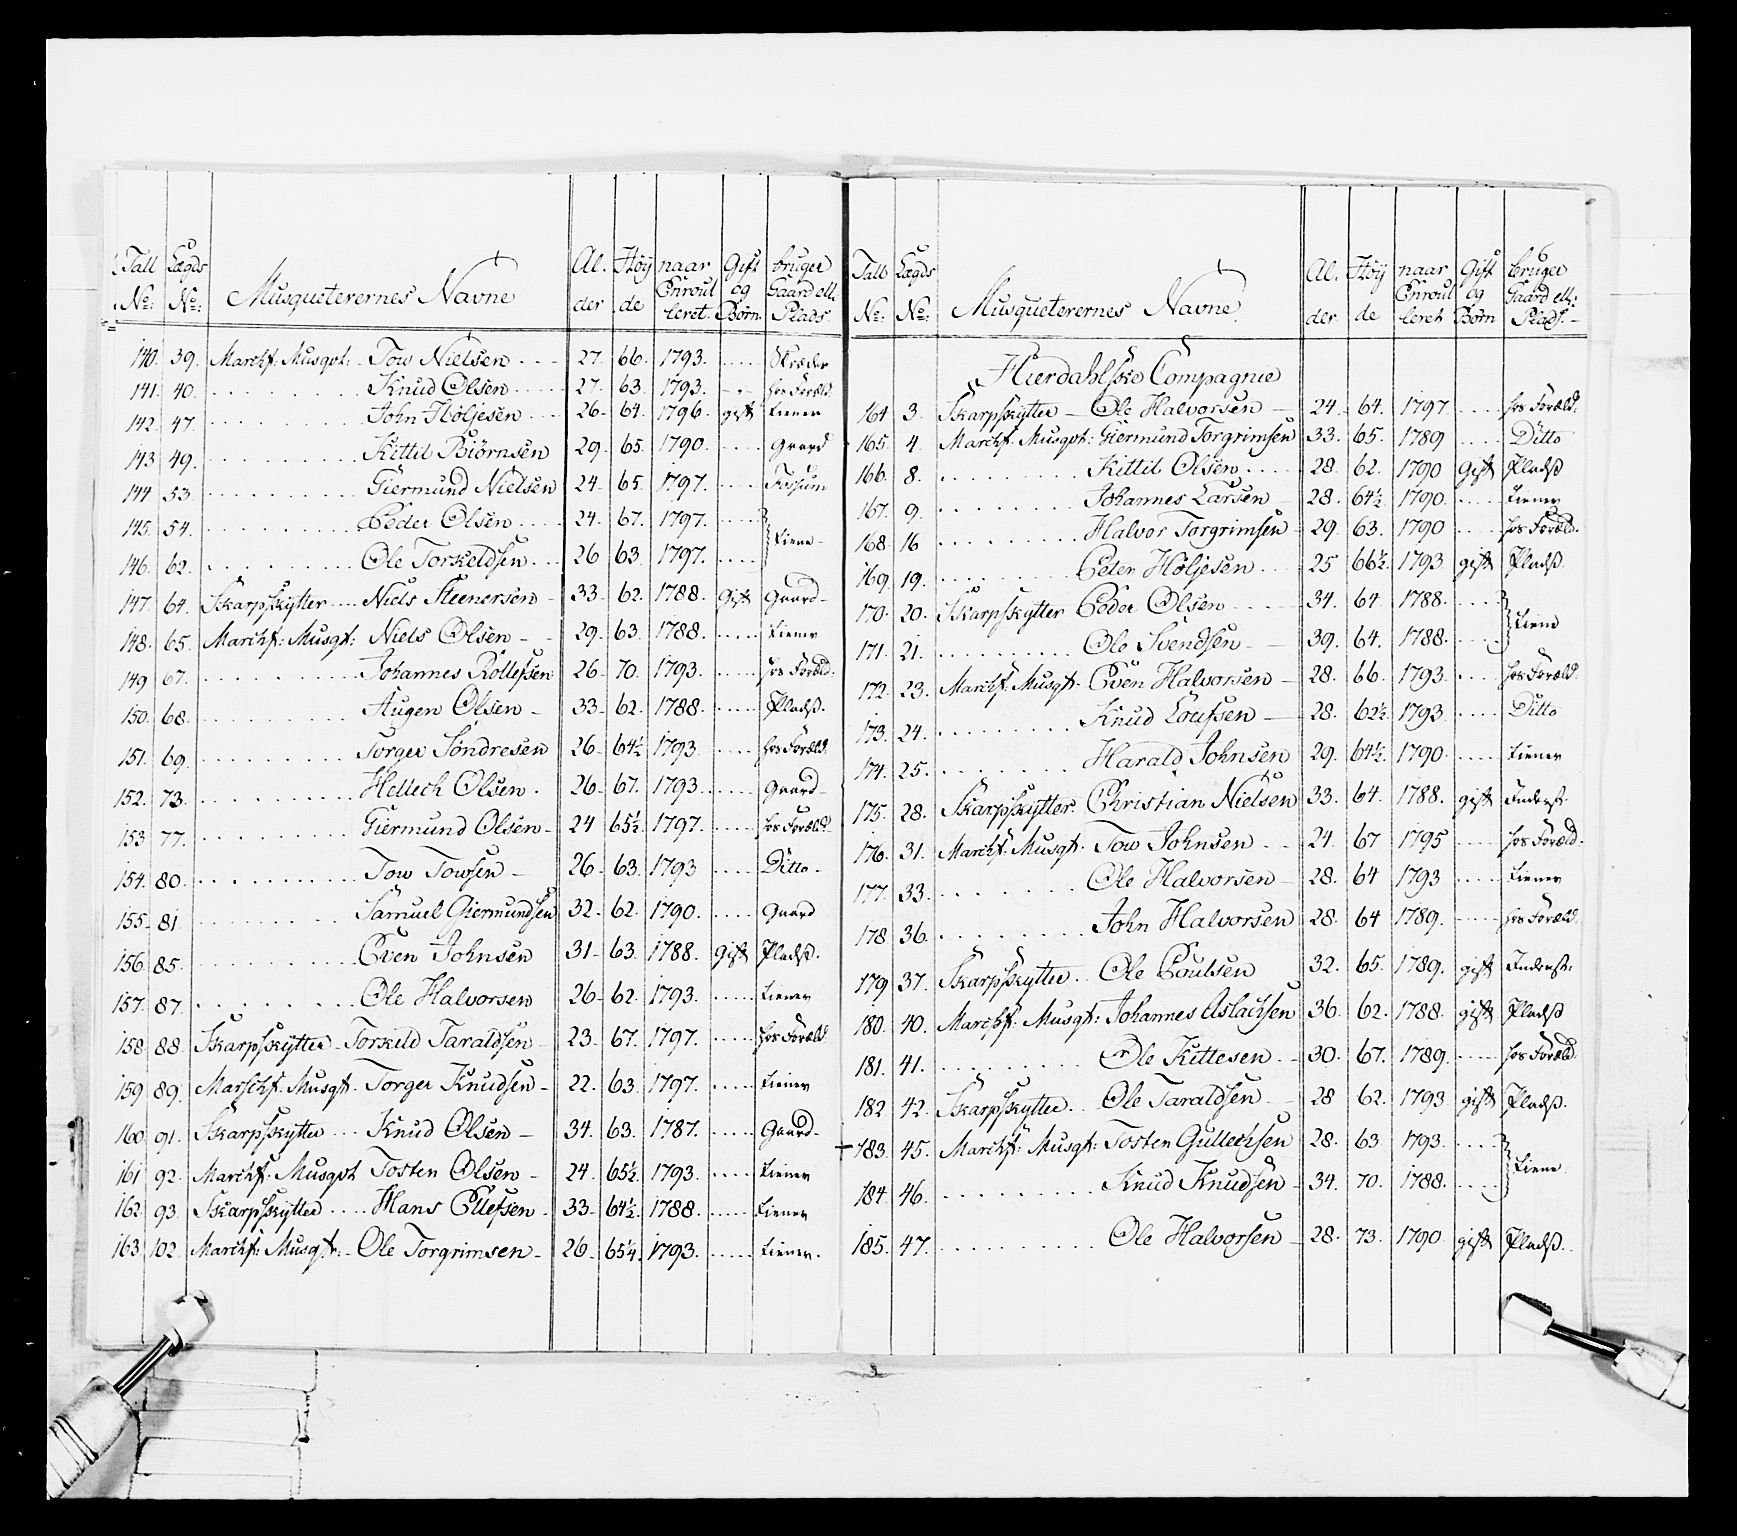 Tall Lægds Al. Höÿ naar Gift bruger
No: No: Musqueterernes Navne der de Enroul leret. og Börn Gaard ell. Plads
140. 39. Marchf: Musqvt: Tow Nielsen 27. 66. 1793. Skræder
141. 40. Knud Olsen 27. 63. 1793. hos Foræld.
142. 47. John Höljesen 26. 64. 1796. gift tiener
143 49. Kittil Biörnsen 29. 65. 1790. Gaard
144 53. Giermund Nielsen 24. 65. 1797. Fossum
145. 54. Peder Olsen 24. 67. 1797.
tiene
146. 62. Ole Torkeldsen 26 63. 1797.
147. 64. Skarpskytter Niels Steenersen 33. 62. 1788. Gift Gaard
148. 65. Marchf: Musqt: Niels Olsen 29. 63. 1788. tiener
149 67. Johannes Rollefsen 26. 70. 1793. hos Foræld.
150. 68. Augen Olsen 33. 62. 1788. Pladß.
151. 69. Torger Söndresen 26. 64½ 1793. hos Foræld.
152. 73. Hellech Olsen. 26. 67. 1793. Gaard
153 77. Giermund Olsen 24 65½. 1797. hos Foræld.
154. 80. Tow Towsen 26. 63. 1793 Ditto.
155. 81 Samuel Giermundsen 32. 62. 1790. Gaard
156. 85. Even Johnsen 31. 63. 1788. Gift Pladß.
157. 87. Ole Halvorsen 26. 62. 1793. tiener
158 88. Skarpskytter Torkild Taraldsen 23. 67. 1797. hos Foræld.
159 89. Marschf: Musqt. Torger Knudsen 22. 63. 1797. tiener
160. 91. Skarpskytter Knud Olsen 34. 63. 1787. Gaard.
161 92. Marchf: Musqvt Tosten Olsen 24. 65½. 1793. tiener
162. 93. Skarpskytter Hans Ellefsen 33. 64½. 1788. tiener
163 102. Marchf: Musqt: Ole Torgrimsen 26. 65¼. 1793. tiener.
Tall Lægds Al. Höÿ naar Gift bruger
No: No: Musqueterernes Navne der de Enroul leret og Börn Gaard ell: Plads.
Hierdahlske Compagnie
164 3. Skarpskytter Ole Halvorsen 24. 64. 1797 hos Foræld.
165. 4. Marchf: Musqvt: Giermund Torgrimsen 33. 65. 1789 Ditto
166. 8. Kittil Olsen 28. 62. 1790 Gift Pladß
167. 9. Johannes Larsen 28. 64½ 1790. tiener
168. 16 Halvor Torgrimsen 29 63. 1790 hos Foræld.
169 19. Peter Höljesen 25 66½. 1793 gift Pladß.
170. 20. Skarpskytter Peder Olsen 34. 64 1788.
tiene
171. 21. Ole Svendsen 39. 64. 1788.
172. 23. Marchf: Musqt. Even Halvorsen 28. 66. 1793. hos Foræld.
173. 24. Knud Loufsen 28. 62½ 1793. Ditto
174. 25. Harald Johnsen 29. 64½. 1790. tiener
175. 28. Skarpskytter. Christian Nielsen 33. 64. 1788. gift Inderst.
176. 31. Marchf: Musqt. Tow Johnsen 24. 67 1795 hos Foræld.
177. 33. Ole Halvorsen 28. 64 1793 tiener
178 36. John Halvorsen 28. 64 1789. hos Foræld.
179 37. Skarpskytter Ole Poulsen 32. 65. 1789. gift Inderst.
180. 40. Marchf: Musqt: Johannes Aslachsen 36. 62. 1788. gift Pladß
181. 41. Ole Kittesen 30. 67. 1789. hos Foræld.
182 42. Skarpskytter Ole Taraldsen 28 62. 1793 gift Pladß.
+183. 45. Marchf: Musqt: Tosten Gullechsen 28. 63 1793.
tiene.
184. 46. Knud Knudsen 34. 70. 1788.
185. 47. Ole Halvorsen 28. 73. 1790. gift Pladß.